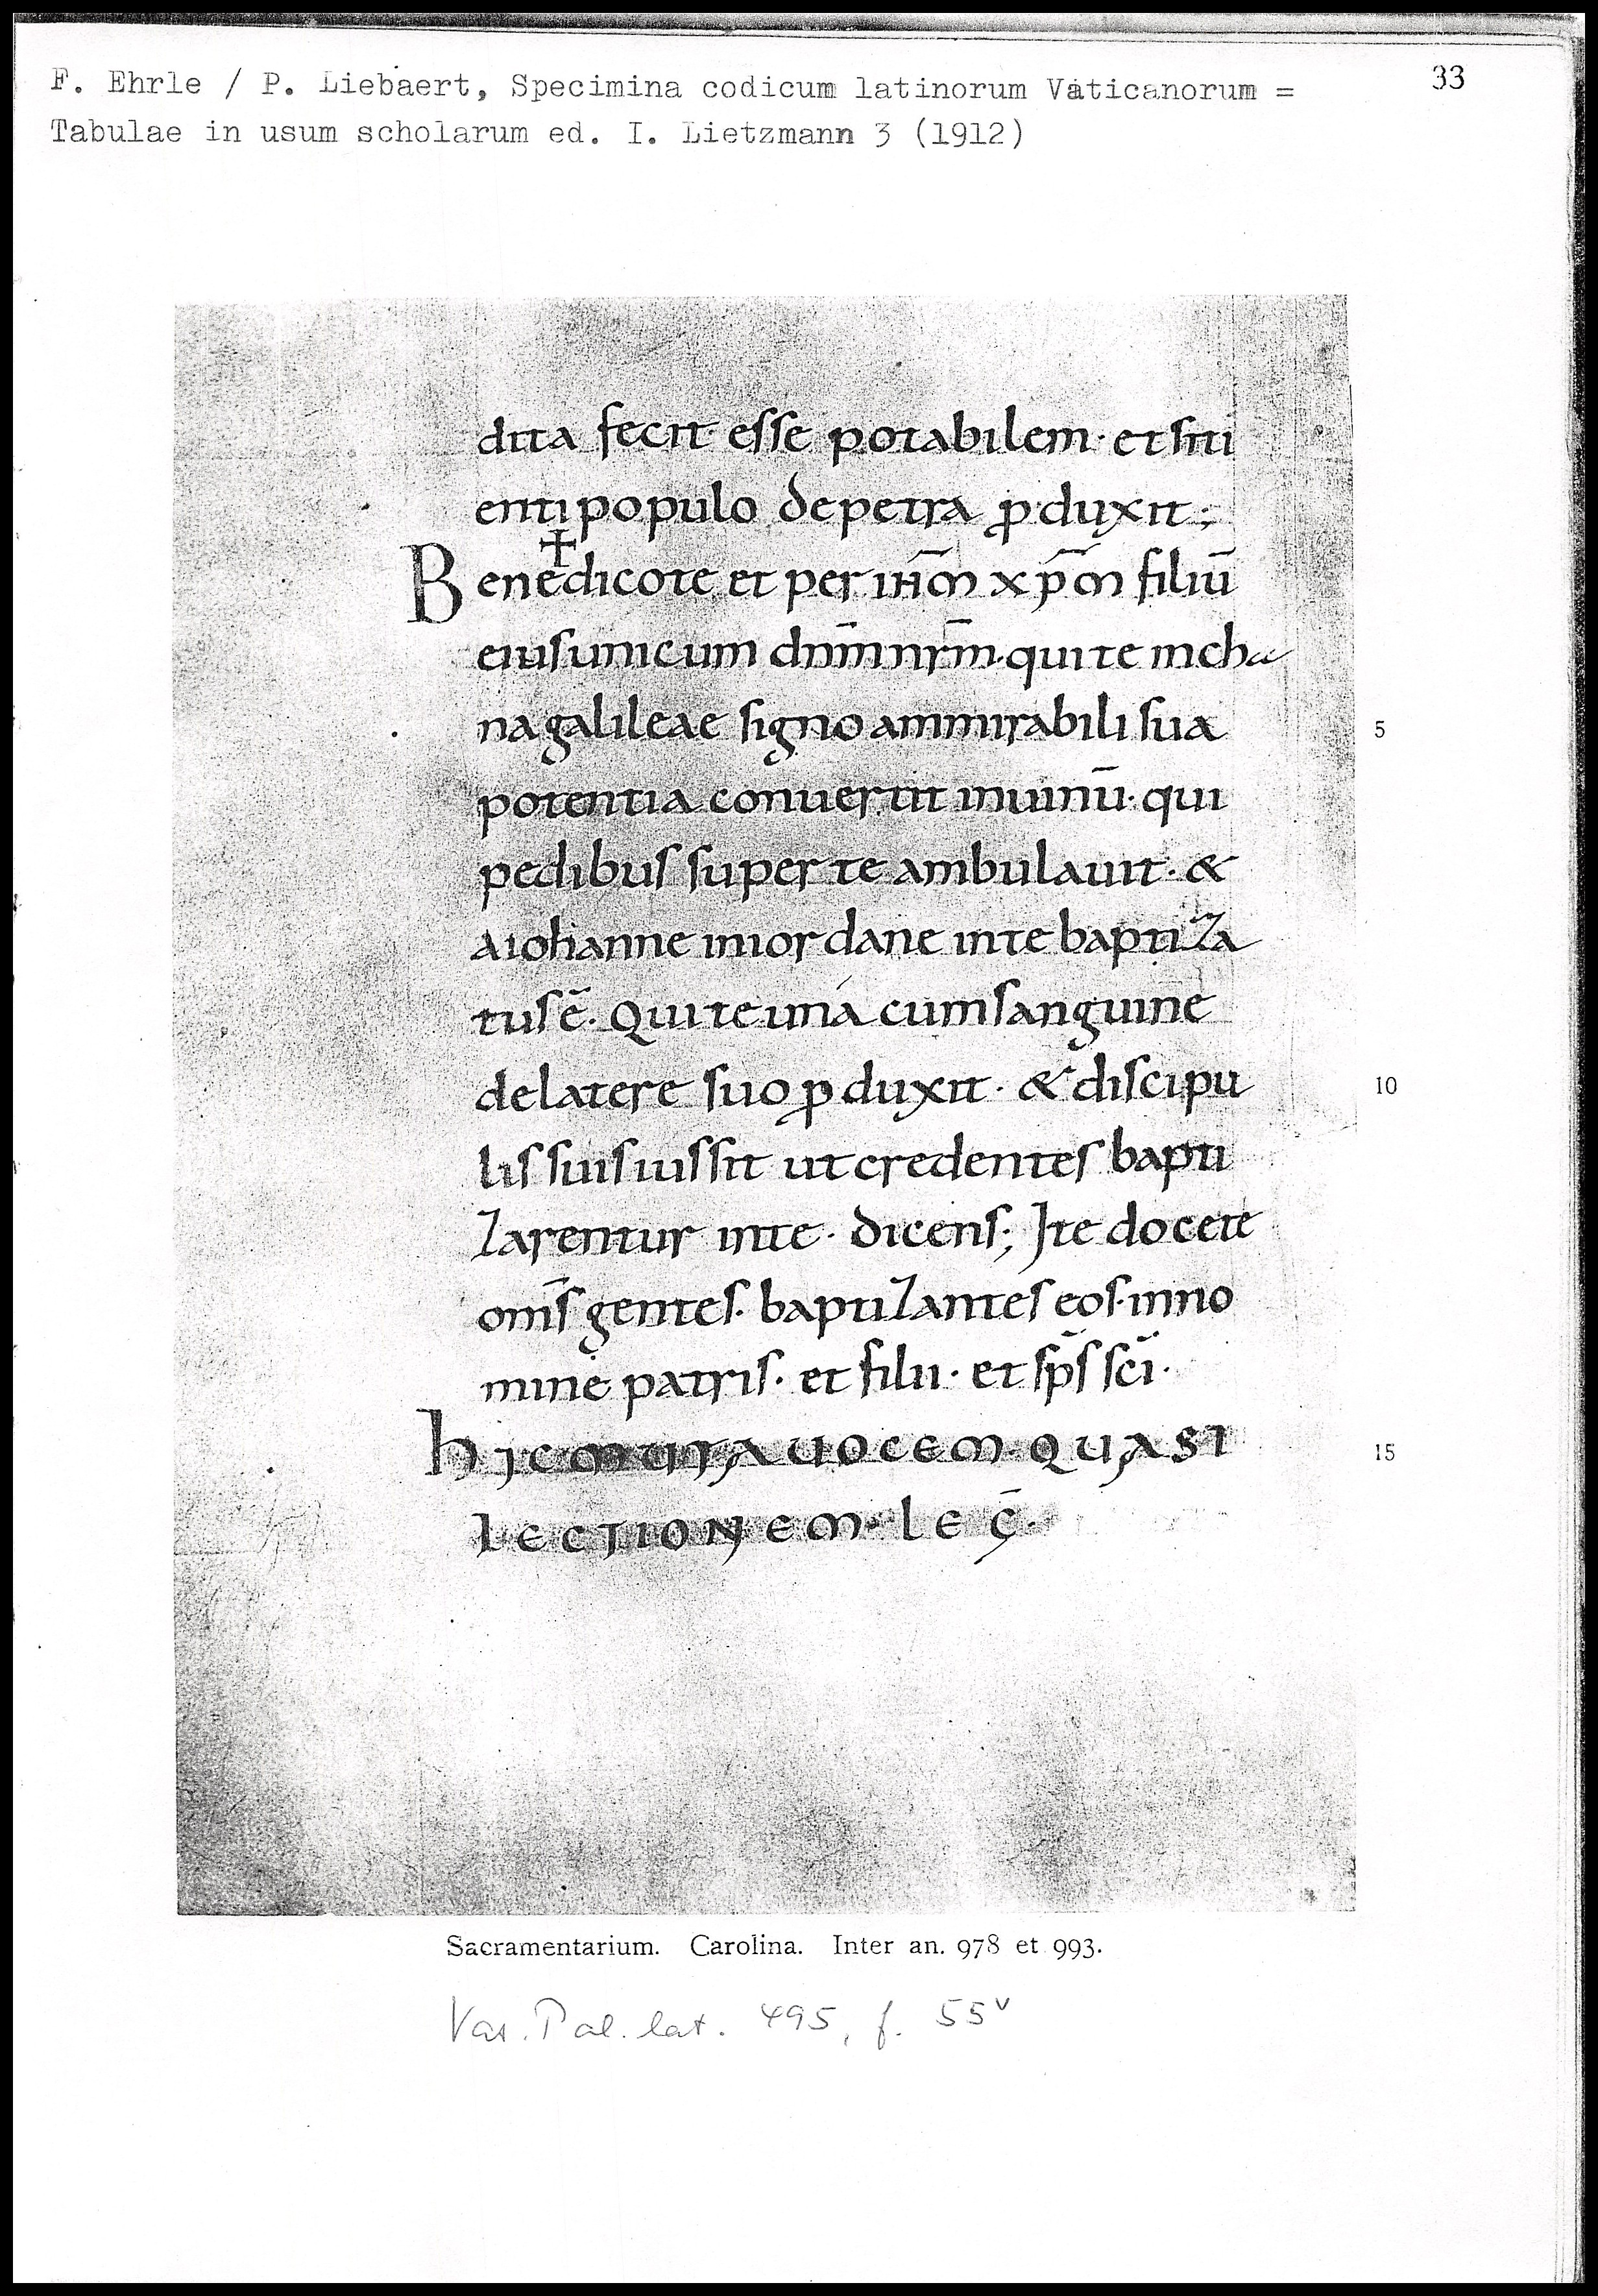 F. Ehrle / P. Liebaert, Specimina codicum latinorum Vaticanorum =
33
Tabulae in usum scholarum ed. I. Lietzmann 3 (1912)
dita fecit· esse potabilem· et siti
enti populo de petra ꝓduxit;
Bene✝dico te et per ih̅m xp̅m filiū
eius unicum dn̅m nr̅m· qui te in cha
na galileae signo ammirabili sua 5
potentia conuertit in uinū· qui
pedibus super te ambulauit· &
a iohanne in iordane in te baptiza
tus ē· Qui te una cum sanguine
de latere suo ꝓduxit· & discipu 10
lis suis iussit ut credentes bapti
zarentur in te· dicens; Ite docete
om̅s gentes· baptizantes eos· in no
mine patris· et filii· et sp̅s sc̅i·
hic mutra uocem· quasi 15
lectionem· lec̅·
Sacramentarium. Carolina. Inter an. 978 et 993.
Vat. Pal. lat. 495, f. 55v